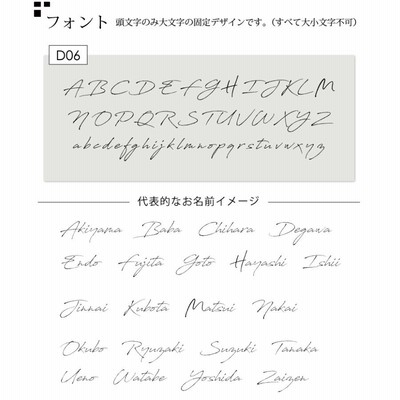 フォント 頭文字のみ大文字の固定デザインです。（すべて大小文字不可）
D06
ABCDEFGHIJKLM
NOPQRSTUVWXYZ
abcdefghijklmnopqrstuvwxyz
代表的なお名前イメージ
Akiyama Baba Chihara Degawa
Endo Fujita Goto Hayashi Ishii
Jinnai Kubota Matsui Nakai
Okubo Ryuzaki Suzuki Tanaka
Ueno Watabe Yoshida Zaizen